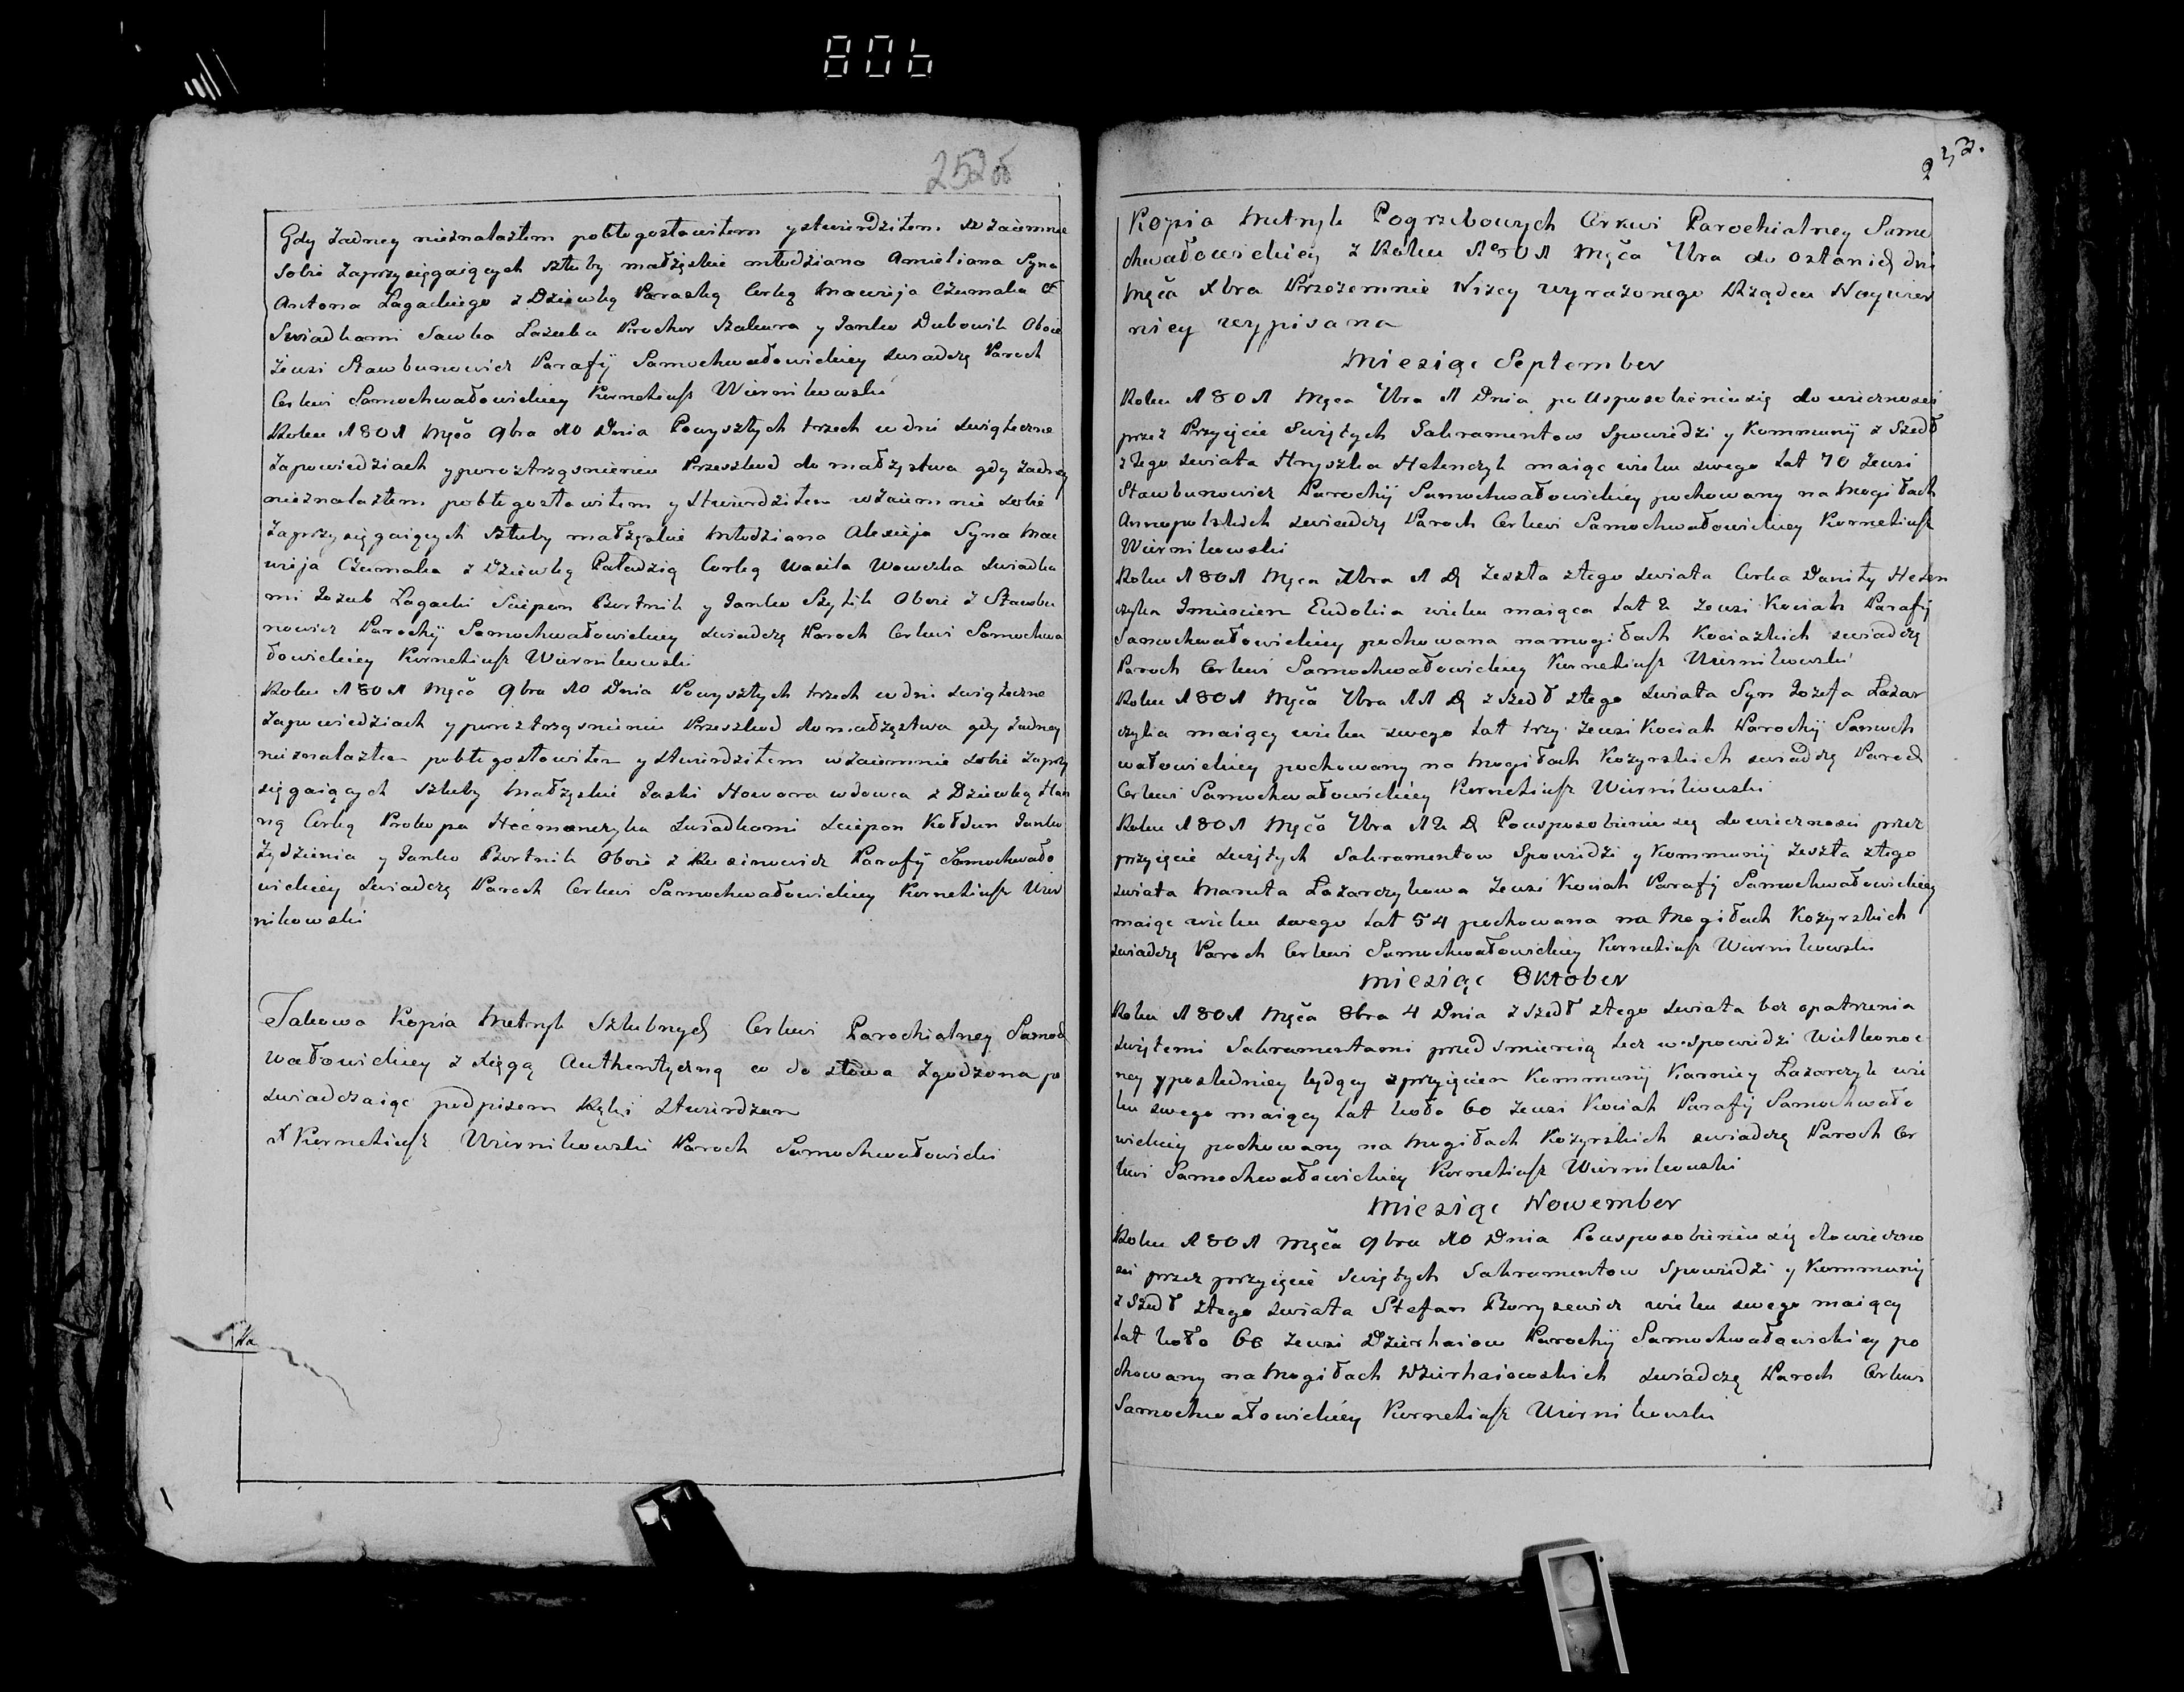 806
252об
Gdy żadney nieznalazłem pobłogosławiłem y stwierdziłem wzaiemnie
Sobie zaprzysięgaiących szluby małżęskie młodziana Amieliana Syna
Antona Łagackiego z Dziewką Paraską Corką Mawieja Czumaka
Swiadkami Sawka Łazuka Prochor Szakura y Janko Dubowik Oboie
zewsi Stawbunowicz Parafÿ Samochwałowickiey swiadczę Paroch
Cerkwi Samochwałowickiey Korneliusz Wiernikowski
Roku 1801 Męča 9bra 10 Dnia Powyszłych trzech w dni swięteczne
Zapowiedziach y poroztrząsnieniu Przeszkod do małżęstwa gdy żadney
nieznalazłem pobłogosławiłem y Stwierdziłem wzaiemnie sobie
Zaprzysięgaiących szluby małżęskie Młodziana Alexieja Syna Mac
wieja Czumaka z Dziewką Paładzią Corką Wasila Wowczka swiadka
mi Jozub Łagacki Sciepan Bortnik y Janko Szylik Oboie z Stawbu
nowicz Parochÿ Samochwałowickiey swiadczę Paroch Cerkwi Samochwa
łowickiey Korneliusz Wiernikowski
Roku 1801 Męča 9bra 10 Dnia Powyszłych trzech w dni swięteczne
Zapowiedziach y poroztrząsnieniu Przeszkod do małżęstwa gdy żadney
nieznalazłem pobłogosławiłem y stwierdziłem wzaiemnie sobie zaprzy
sięgaiących szluby Małżęskie Jaski Howora wdowca z Dziewką Han
ną Corką Prokopa Hećmanczyka Swiadkami Sciepan Kołdun Janko
Żydzienia y Janko Bortnik Oboie z Rusinowicz Parafÿ Samochwało
wickiey swiadczę Paroch Cerkwi Samochwałowickiey Korneliusz Wier
nikowski
Takowa Kopia Metryk Szlubnych Cerkwi Parochialney Samoch
wałowickiey z Xięgą Authentyczną co do słowa Zgodzona po
swiadczaiąc podpisem Ręki stwierdzam
X Korneliusz Wiernikowski Paroch Samochwałowicki
253.
Kopia Metryk Pogrzebowych Cerkwi Parochialney Samo
chwałowickiey z Roku 1801 Męča 7bra do ostanich dni
Męča Xbra Przezemnie Niżey wyrażonego Rządcu Naywier
niey wypisana
Miesiąc September
Roku 1801 Męca 7bra 1 Dnia po Usposobieniu się do wiecznosci
przez Przyięcie Swiętych Sakramentow Spowiedzi y Kommunÿ z Szedł
z tego swiata Hryszka Helenczyk maiąc wieku swego Lat 70 zewsi
Stawbunowicz Parochÿ Samochwałowickiey pochowany na Mogiłach
Annopolskich swiadczę Paroch Cerkwi Samochwałowickiey Korneliusz
Wiernikowski
Roku 1801 Męca 7bra 1 D Zeszła ztego swiata Corka Daniły Helen
czyka Imieniem Eudokia wieku maiąca Lat 2 zewsi Kociah Parafÿ
Samochwałowickiey pochowana na mogiłach Kociazkich swiadczę
Paroch Cerkwi Samochwałowickiey Korneliusz Wiernikowski
Roku 1801 Męča 7bra 11 D z Szedł ztego swiata Syn Jozefa Łazar
czyka maiący wieku swego Lat trzy zewsi Kociah Parochÿ Samoch
wałowickiey pochowany na Mogiłach Kożyrskich swiadczę Paroch
Cerkwi Samochwałowickiey Korneliusz Wiernikowski
Roku 1801 Męča 7bra 12 D Pousposobieniu się dowiecznosci przez
przyięcie swiętych Sakramentow Spowiedzi y Kommunÿ Zeszła ztego
swiata Maruta Łazarczykowa zewsi Kociah Parafÿ Samochwałowickiey
maiąc wieku swego Lat 54 pochowana na Mogiłach Kożyrskich
swiadczę Paroch Cerkwi Samochwałowickiey Korneliusz Wiernikowski
Miesiąc Oktober
Roku 1801 Męča 8bra 4 Dnia z Szedł ztego swiata bez opatrzenia
swiętemi Sakramentami przed smiercią lecz w spowiedzi Wielkonoc
ney y posledniey będący z przyięciem Kommunÿ Karniey Łazarczyk wie
ku swego maiący Lat koło 60 zewsi Kociah Parafÿ Samochwało
wickiey pochowany na Mogiłach Kożyrskich swiadczę Paroch Cer
kwi Samochwałowickiey Korneliusz Wiernikowski
Miesiąc Nowember
Roku 1801 Męča 9bra 10 Dnia Pousposobieniu się dowieczno
sci przez przyięcie Swiętych Sakramentow Spowiedzi y Kommunÿ
z Szedł ztego swiata Stefan Borysewicz wieku swego maiący
Lat koło 60 zewsi Dzierhaiow Parochÿ Samochwałowickiey po
chowany na Mogiłach Dzierhaiowskich swiadczę Paroch Cerkwi
Samochwałowickiey Korneliusz Wiernikowski